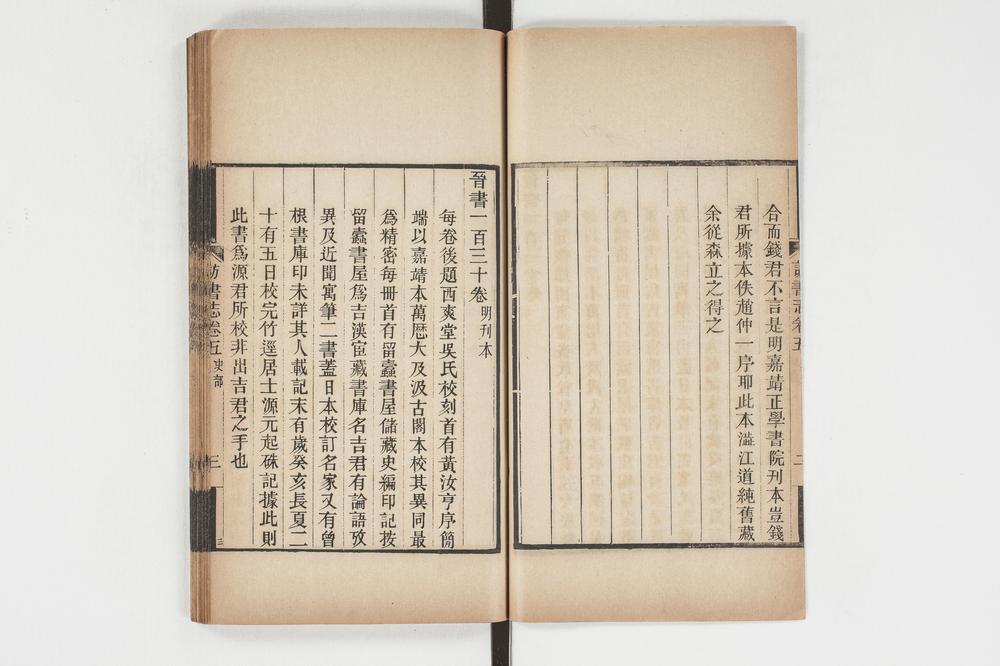 合而錢君不言是明嘉靖正學書院刊本豈錢
君所據本佚趙仲一序耶此本澁江道純舊藏
余從森立之得之
訪書志卷五
二
晉書一百三十卷 明刊本
每卷後題西爽堂吳氏校刻首有黃汝亨序簡
端以嘉靖本萬厯大及汲古閣本校其異同最
爲精密每冊首有留蠧書屋儲藏史編印記按
留蠧書屋爲吉漢宦藏書庫名吉君有論語攷
異及近聞寓筆二書蓋日本校訂名家又有曾
根書庫印未詳其人載記末有歲癸亥長夏二
十有五日校完竹逕居士源元起硃記據此則
此書爲源君所校非出吉君之手也
訪書志卷五 史部
三